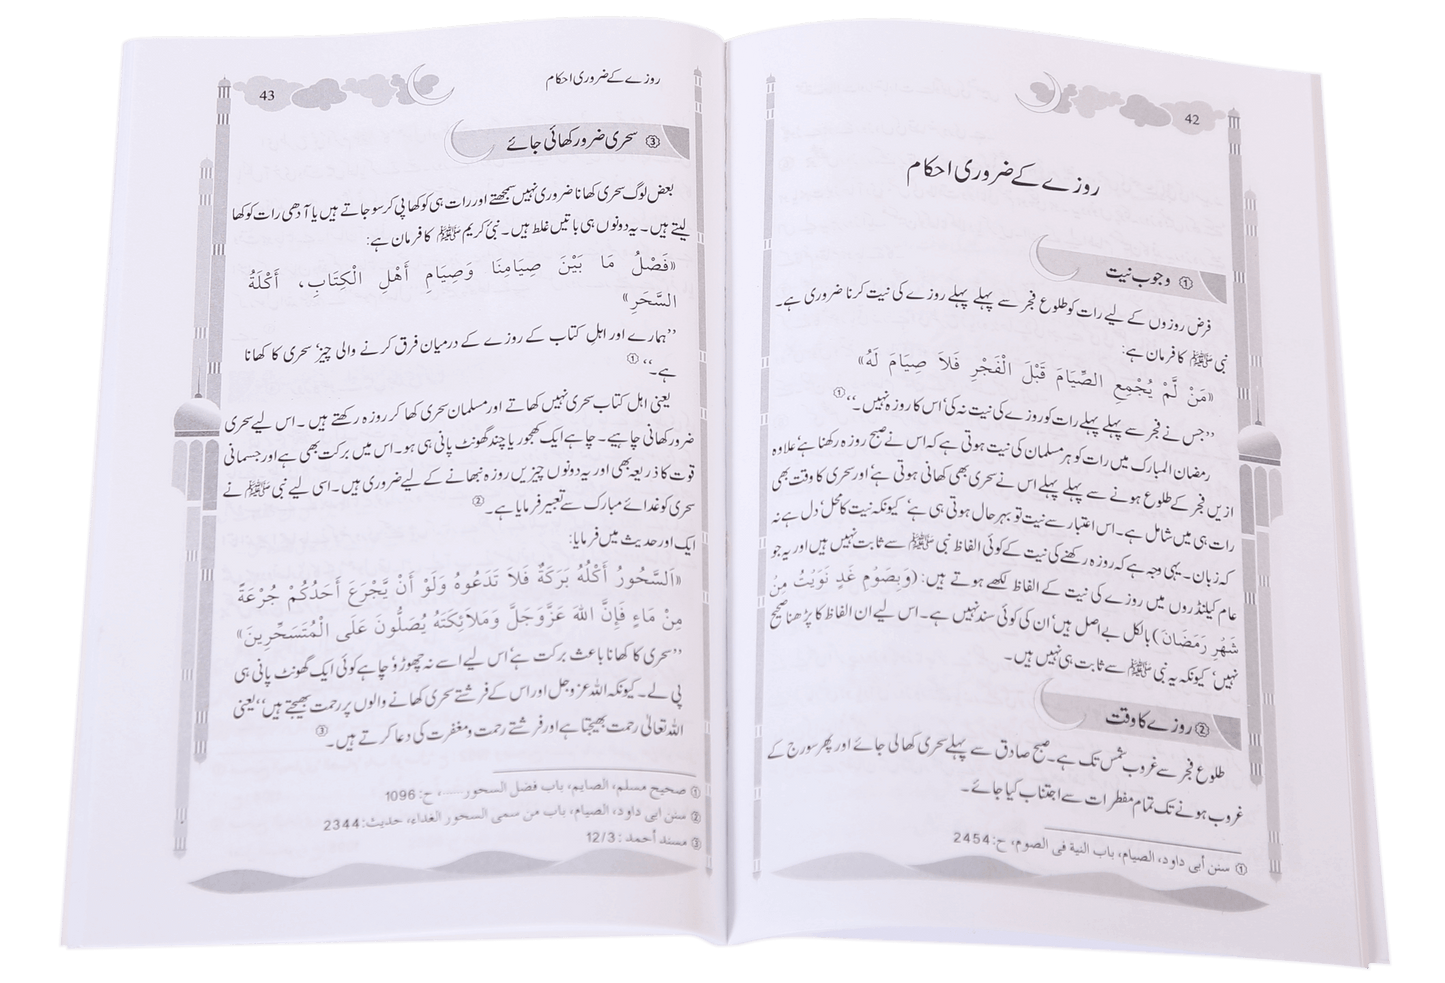 42
روزے کے ضروری احکام
① وجوب نیت
فرض روزوں کے لیے رات کو طلوع فجر سے پہلے پہلے روزے کی نیت کرنا ضروری ہے۔
نبی ﷺ کا فرمان ہے:
«مَنْ لَّمْ يُجْمِعِ الصِّيَامَ قَبْلَ الْفَجْرِ فَلَا صِيَامَ لَهُ»
’’جس نے فجر سے پہلے پہلے رات کو روزے کی نیت نہ کی‘ اس کا روزہ نہیں۔‘‘①
رمضان المبارک میں رات کو ہر مسلمان کی نیت ہوتی ہے کہ اس نے صبح روزہ رکھنا ہے‘ علاوہ
ازیں فجر کے طلوع ہونے سے پہلے پہلے اس نے سحری بھی کھانی ہوتی ہے‘ اور سحری کا وقت بھی
رات ہی میں شامل ہے۔ اس اعتبار سے نیت تو بہر حال ہوتی ہی ہے‘ کیونکہ نیت کا محل‘ دل ہے نہ
کہ زبان۔ یہی وجہ ہے کہ روزہ رکھنے کی نیت کے کوئی الفاظ نبی ﷺ سے ثابت نہیں ہیں اور یہ جو
عام کیلنڈروں میں روزے کی نیت کے الفاظ لکھے ہوتے ہیں: (وَبِصَوْمِ غَدٍ نَوَيْتُ مِنْ
شَهْرِ رَمَضَانَ) بالکل بے اصل ہیں‘ ان کی کوئی سند نہیں ہے۔ اس لیے ان الفاظ کا پڑھنا صحیح
نہیں‘ کیونکہ یہ نبی ﷺ سے ثابت ہی نہیں ہیں۔
② روزے کا وقت
طلوع فجر سے غروب شمس تک ہے۔ صبح صادق سے پہلے سحری کھا لی جائے اور پھر سورج کے
غروب ہونے تک تمام مفطرات سے اجتناب کیا جائے۔
① سنن أبی داود، الصیام، باب النیة فی الصوم، ح: 2454
روزے کے ضروری احکام
43
③ سحری ضرور کھائی جائے
بعض لوگ سحری کھانا ضروری نہیں سمجھتے اور رات ہی کو کھا پی کر سو جاتے ہیں یا آدھی رات کو کھا
لیتے ہیں۔ یہ دونوں ہی باتیں غلط ہیں۔ نبی کریم ﷺ کا فرمان ہے:
«فَصْلُ مَا بَيْنَ صِيَامِنَا وَصِيَامِ أَهْلِ الْكِتَابِ، أَكْلَةُ
السَّحَرِ»
’’ہمارے اور اہلِ کتاب کے روزے کے درمیان فرق کرنے والی چیز‘ سحری کا کھانا
ہے۔‘‘①
یعنی اہل کتاب سحری نہیں کھاتے اور مسلمان سحری کھا کر روزہ رکھتے ہیں۔ اس لیے سحری
ضرور کھانی چاہیے۔ چاہے ایک کھجور یا چند گھونٹ پانی ہی ہو۔ اس میں برکت بھی ہے اور جسمانی
قوت کا ذریعہ بھی اور یہ دونوں چیزیں روزہ نبھانے کے لیے ضروری ہیں۔ اسی لیے نبی ﷺ نے
سحری کو غدائے مبارک سے تعبیر فرمایا ہے۔②
ایک اور حدیث میں فرمایا:
«اَلسَّحُورُ أَكْلُهُ بَرَكَةٌ فَلَا تَدَعُوهُ وَلَوْ أَنْ يَّجْرَعَ أَحَدُكُمْ جُرْعَةً
مِنْ مَاءٍ فَإِنَّ اللهَ عَزَّوَجَلَّ وَمَلَائِكَتَهُ يُصَلُّونَ عَلَى الْمُتَسَحِّرِينَ»
’’سحری کا کھانا باعث برکت ہے‘ اس لیے اسے نہ چھوڑو‘ چاہے کوئی ایک گھونٹ پانی ہی
پی لے۔ کیونکہ اللہ عزوجل اور اس کے فرشتے سحری کھانے والوں پر رحمت بھیجتے ہیں‘‘ یعنی
اللہ تعالیٰ رحمت بھیجتا ہے اور فرشتے رحمت و مغفرت کی دعا کرتے ہیں۔③
① صحیح مسلم، الصیام، باب فضل السحور......، ح: 1096
② سنن ابی داود، الصیام، باب من سمی السحور الغداء، حدیث: 2344
③ مسند أحمد: 12/3